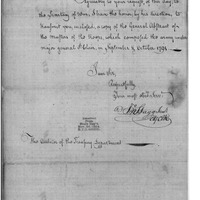 Agreeably to your request, of this day, to
the Secretary of War, I have the honor, by his direction, to
transmit you, enclosed, a copy of the General Abstract of
the musters of the troops, which composed the army under
major general St. Clair, in September & October, 1791
I am Sir,
Respectfully
Your most obt. Servt.
The Auditor of the Treasury department